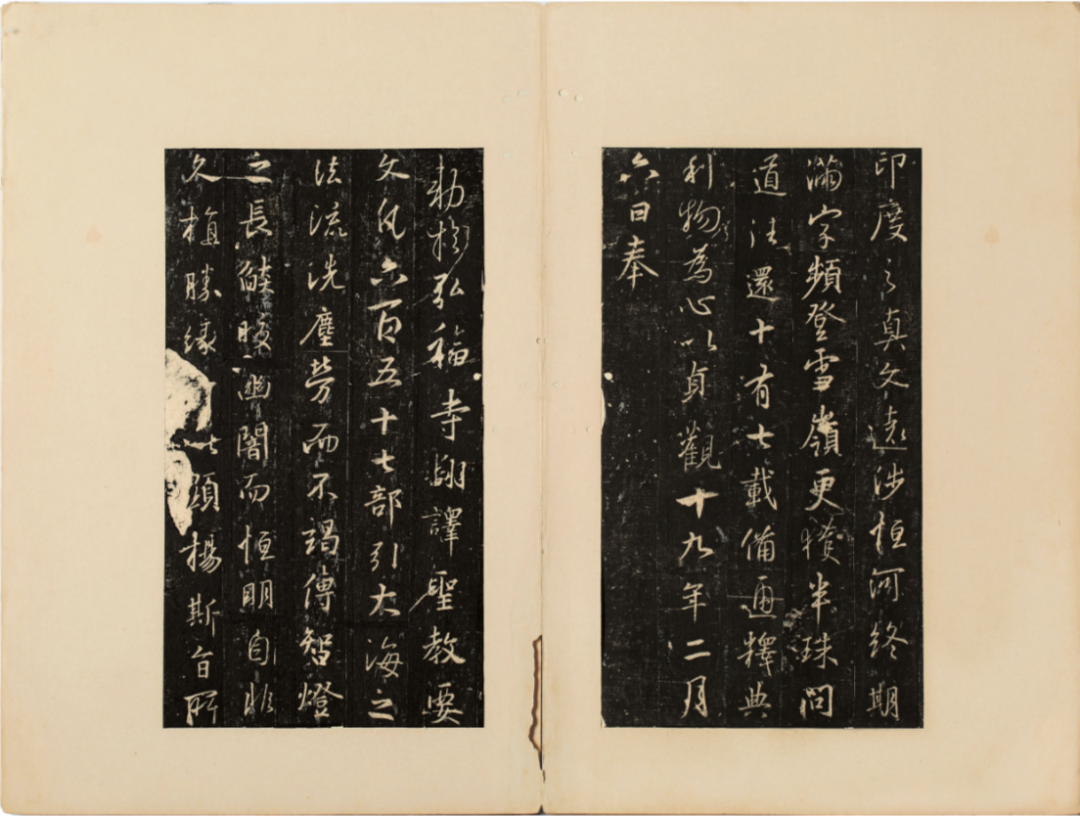 印度之真文遠涉恒河終期
滿字頻登雪嶺更獲半珠問
道法還十有七載備通釋典
利物為心以貞觀十九年二月
六日奉
勑於弘福寺翻譯聖教要
文凡六百五十七部引大海之
法流洗塵勞而不竭傳智燈
之長焰皎幽闇而恒明自非
久植勝緣以顯揚斯旨所